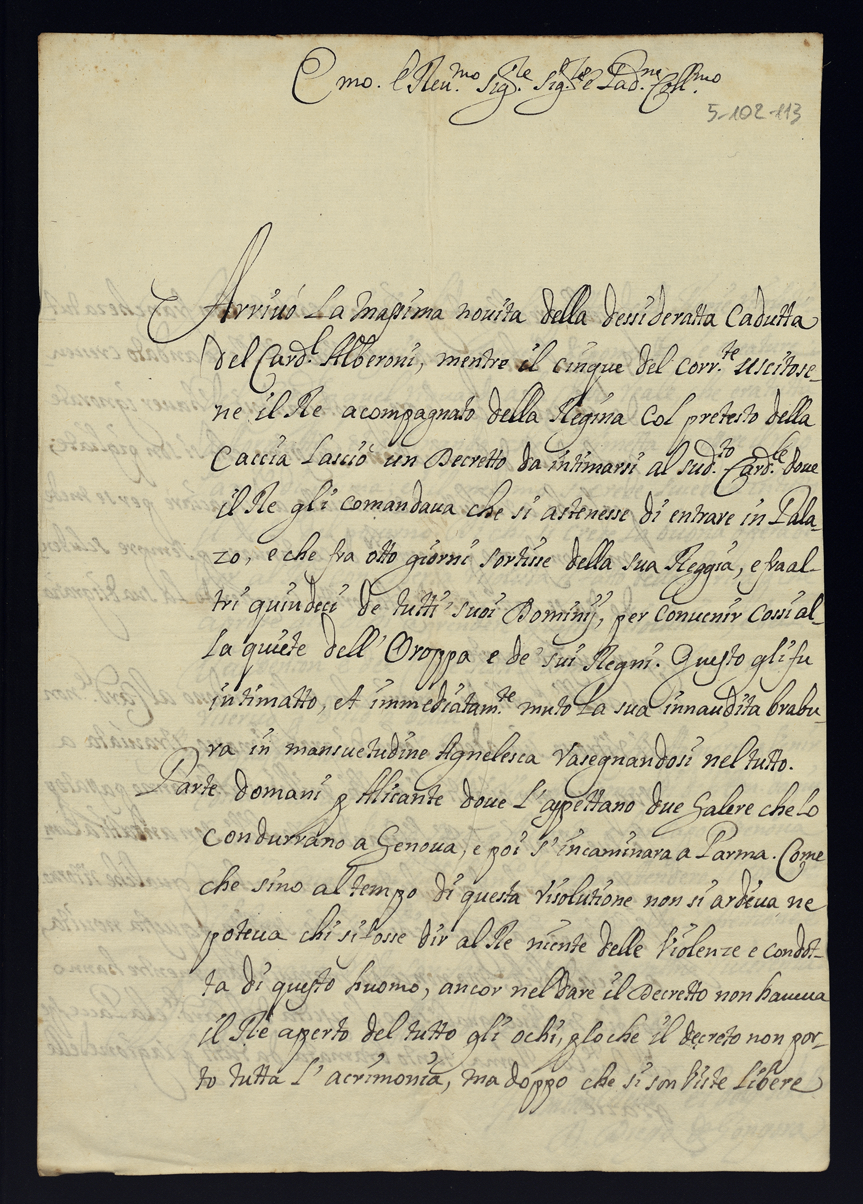 Emo. e Reu.mo Sig.re Sig.re e Pad.ne Coll.mo
5-102-113
Arriuó La massima nouita della dessideratta Cadutta
del Card.l Alberoni, mentre il cinque del corr.te uscitose-
ne il Re acompagnato della Regina Col pretesto della
Caccia Lasció un Decretto da intimarsi al sud.to Card.le doue
il Re gli comandaua che si astenesse di entrare in Pala-
zo, e che fra otto giorni sortisse della sua Reggia, e fra al-
tri quindeci de tutti suoi Dominij, per conuenir Cossi al-
La quiete dell' Oroppa e de' sui Regni. Questo gli fu
intimatto, et immediatam.te muto La sua innaudita brabu-
ra in mansuetudine Agnelesca rasegnandosi nel tutto.
Parte domani p Alicante doue L'aspettano due Galere che Lo
Condurrano a Genoua, e poi s'incaminara a Parma. Come
che sino al tempo di questa risolutione non si ardiua ne
poteua chi si fosse dir al Re niente delle Violenze e condot-
ta di questo huomo, ancor nel dare il Decretto non haueua
il Re aperto del tutto gli ochi, p lo che il decreto non por-
to tutta L'acrimonia, ma doppo che si son Viste Libere